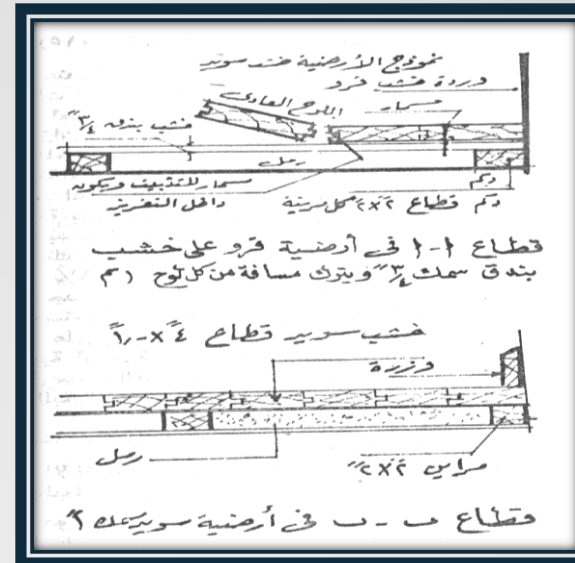 نموذج الأرضية خشب سويد
وزرة خشب قرو
مسمار
اللوح العادى
خشب بندق ٣/٤"
رمل
مسمار للتثبيت ويكون
داخل التفريز
دكم
دكم قطاع ٢"×٢" كل مرينة
قطاع ا-ا فى أرضية قرو على خشب
بندق سمك ٣/٤" ويترك مسافة من كل لوح
خشب سويد قطاع ٤"×
وزرة
رمل
مراين ٢"×٢"
قطاع ب - ب فى أرضية سويد سمك ٢"